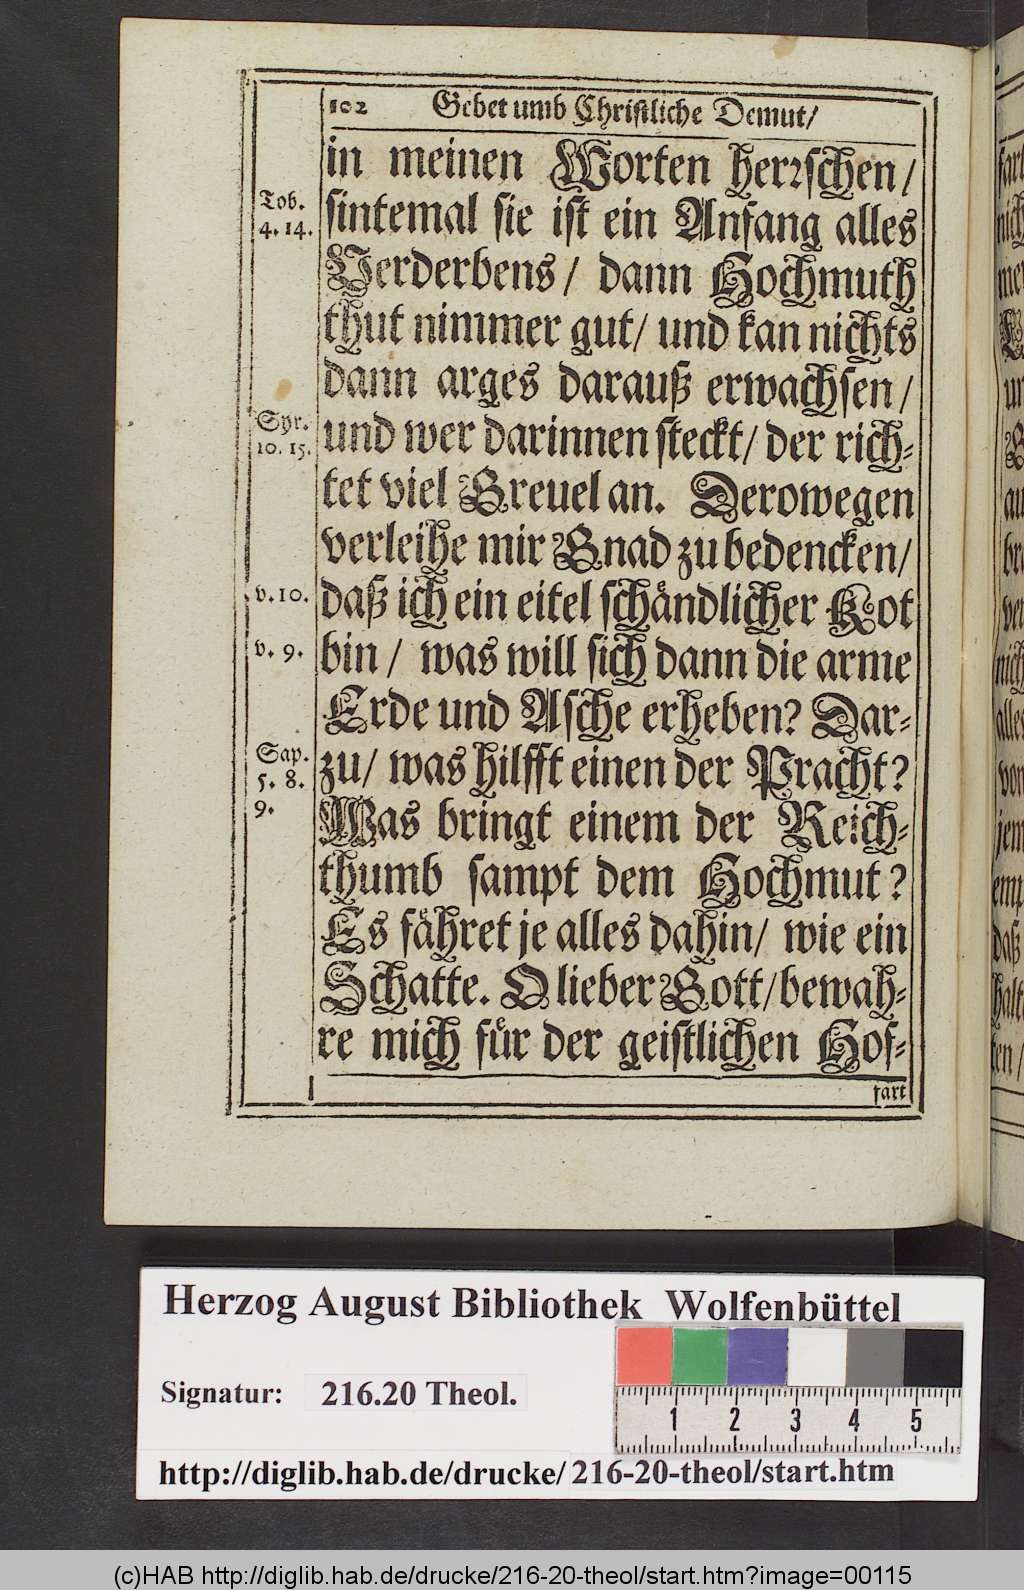 102 Gebet umb Christliche Demut/
in meinen Worten herrschen/
Tob.
4. 14.
sintemal sie ist ein Anfang alles
Verderbens/ dann Hochmuth
thut nimmer gut/ und kan nichts
dann arges darauß erwachsen/
Syr.
10. 15.
und wer darinnen steckt/ der rich-
tet viel Greuel an. Derowegen
verleihe mir Gnad zu bedencken/
v. 10.
daß ich ein eitel schändlicher Kot
v. 9.
bin/ was will sich dann die arme
Erde und Asche erheben? Dar-
Sap.
5. 8.
9.
zu/ was hilfft einen der Pracht?
Was bringt einem der Reich-
thumb sampt dem Hochmut?
Es fähret je alles dahin/ wie ein
Schatte. O lieber Gott/ bewah-
re mich für der geistlichen Hof-
fart
Herzog August Bibliothek Wolfenbüttel
Signatur: 216.20 Theol.
1 2 3 4 5
http://diglib.hab.de/drucke/216-20-theol/start.htm
(c)HAB http://diglib.hab.de/drucke/216-20-theol/start.htm?image=00115